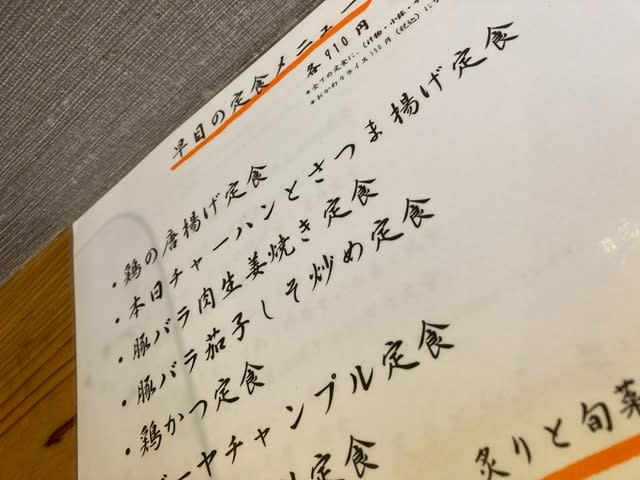 早目の定食メニュー
各910円
*全ての定食に、(汁物・小鉢・
*おかわりライス150円(税込)に
・鶏の唐揚げ定食
・本日チャーハンとさつま揚げ定食
・豚バラ肉生姜焼き定食
・豚バラ茄子しそ炒め定食
・鶏かつ定食
ーヤチャンプル定食
定食
炙りと旬菜